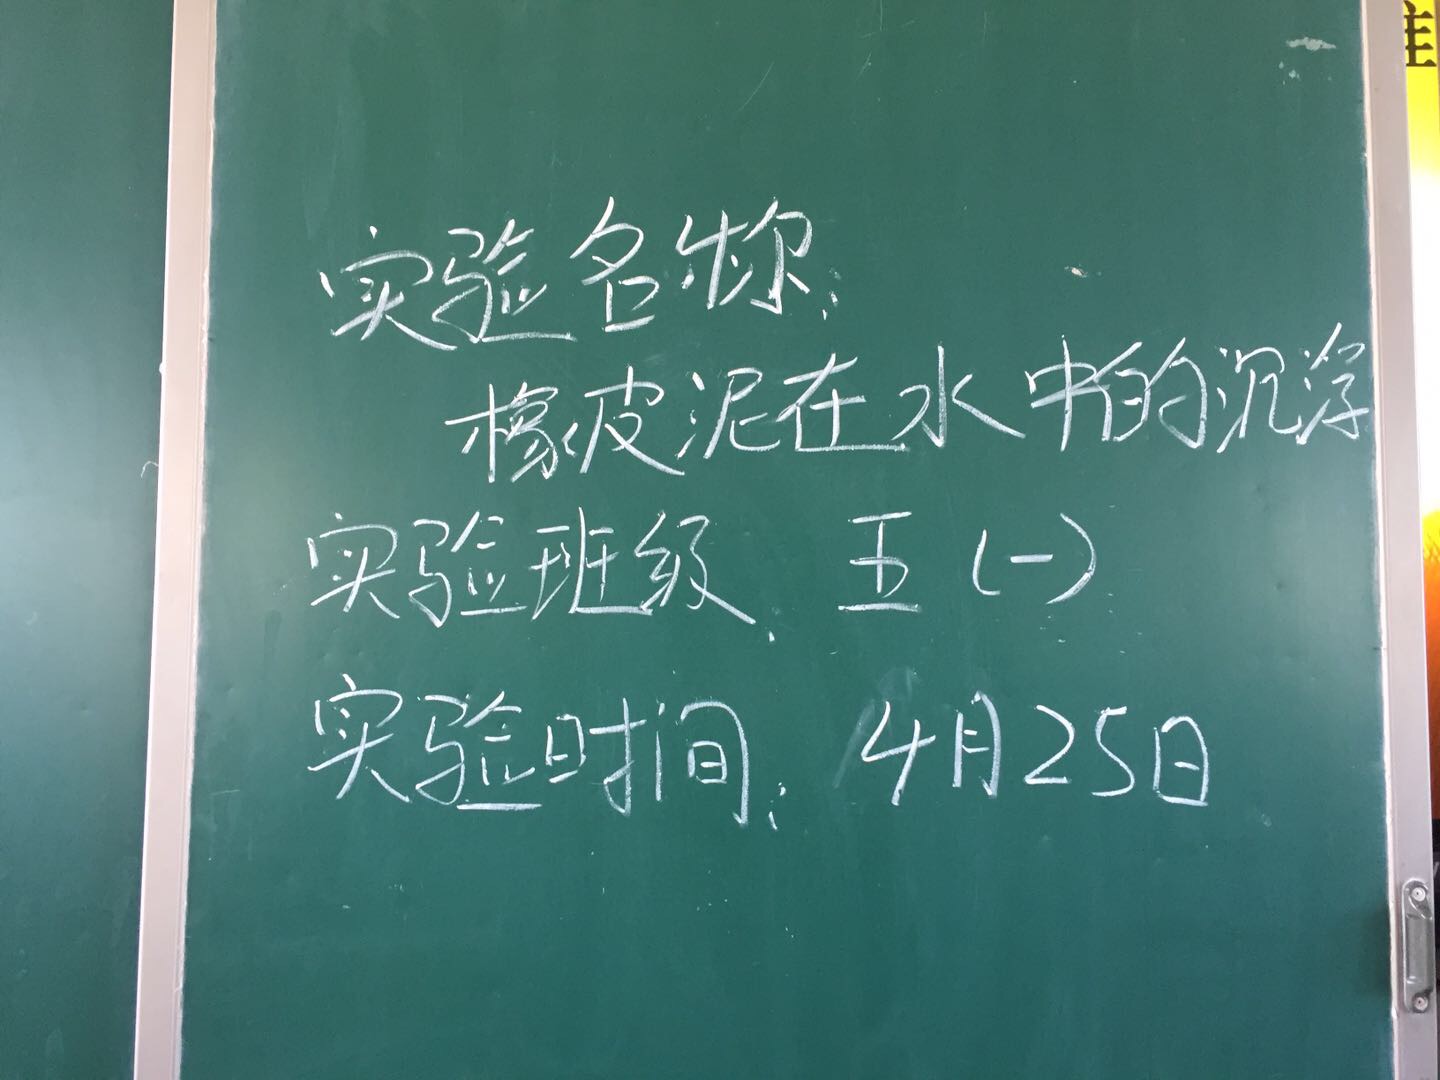 实验名称:
橡皮泥在水中的沉浮
实验班级: 五(一)
实验时间: 4月25日